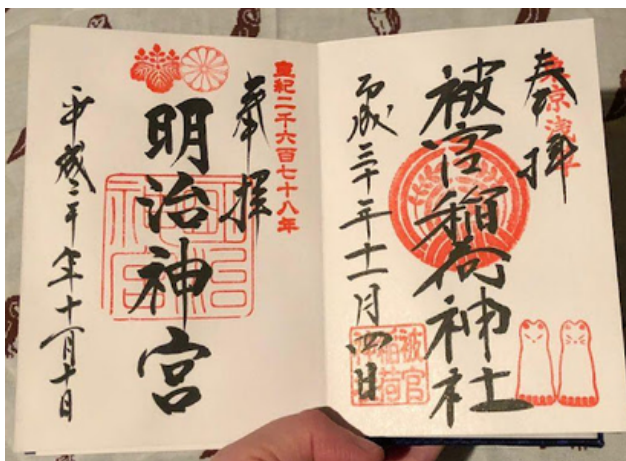 東京浅草
奉拝
被官稲荷神社
平成三十年十一月四日
被官
稲荷
神社
皇紀二千六百七十八年
奉拝
明治神宮
明治
神宮
平成三十年十一月十日